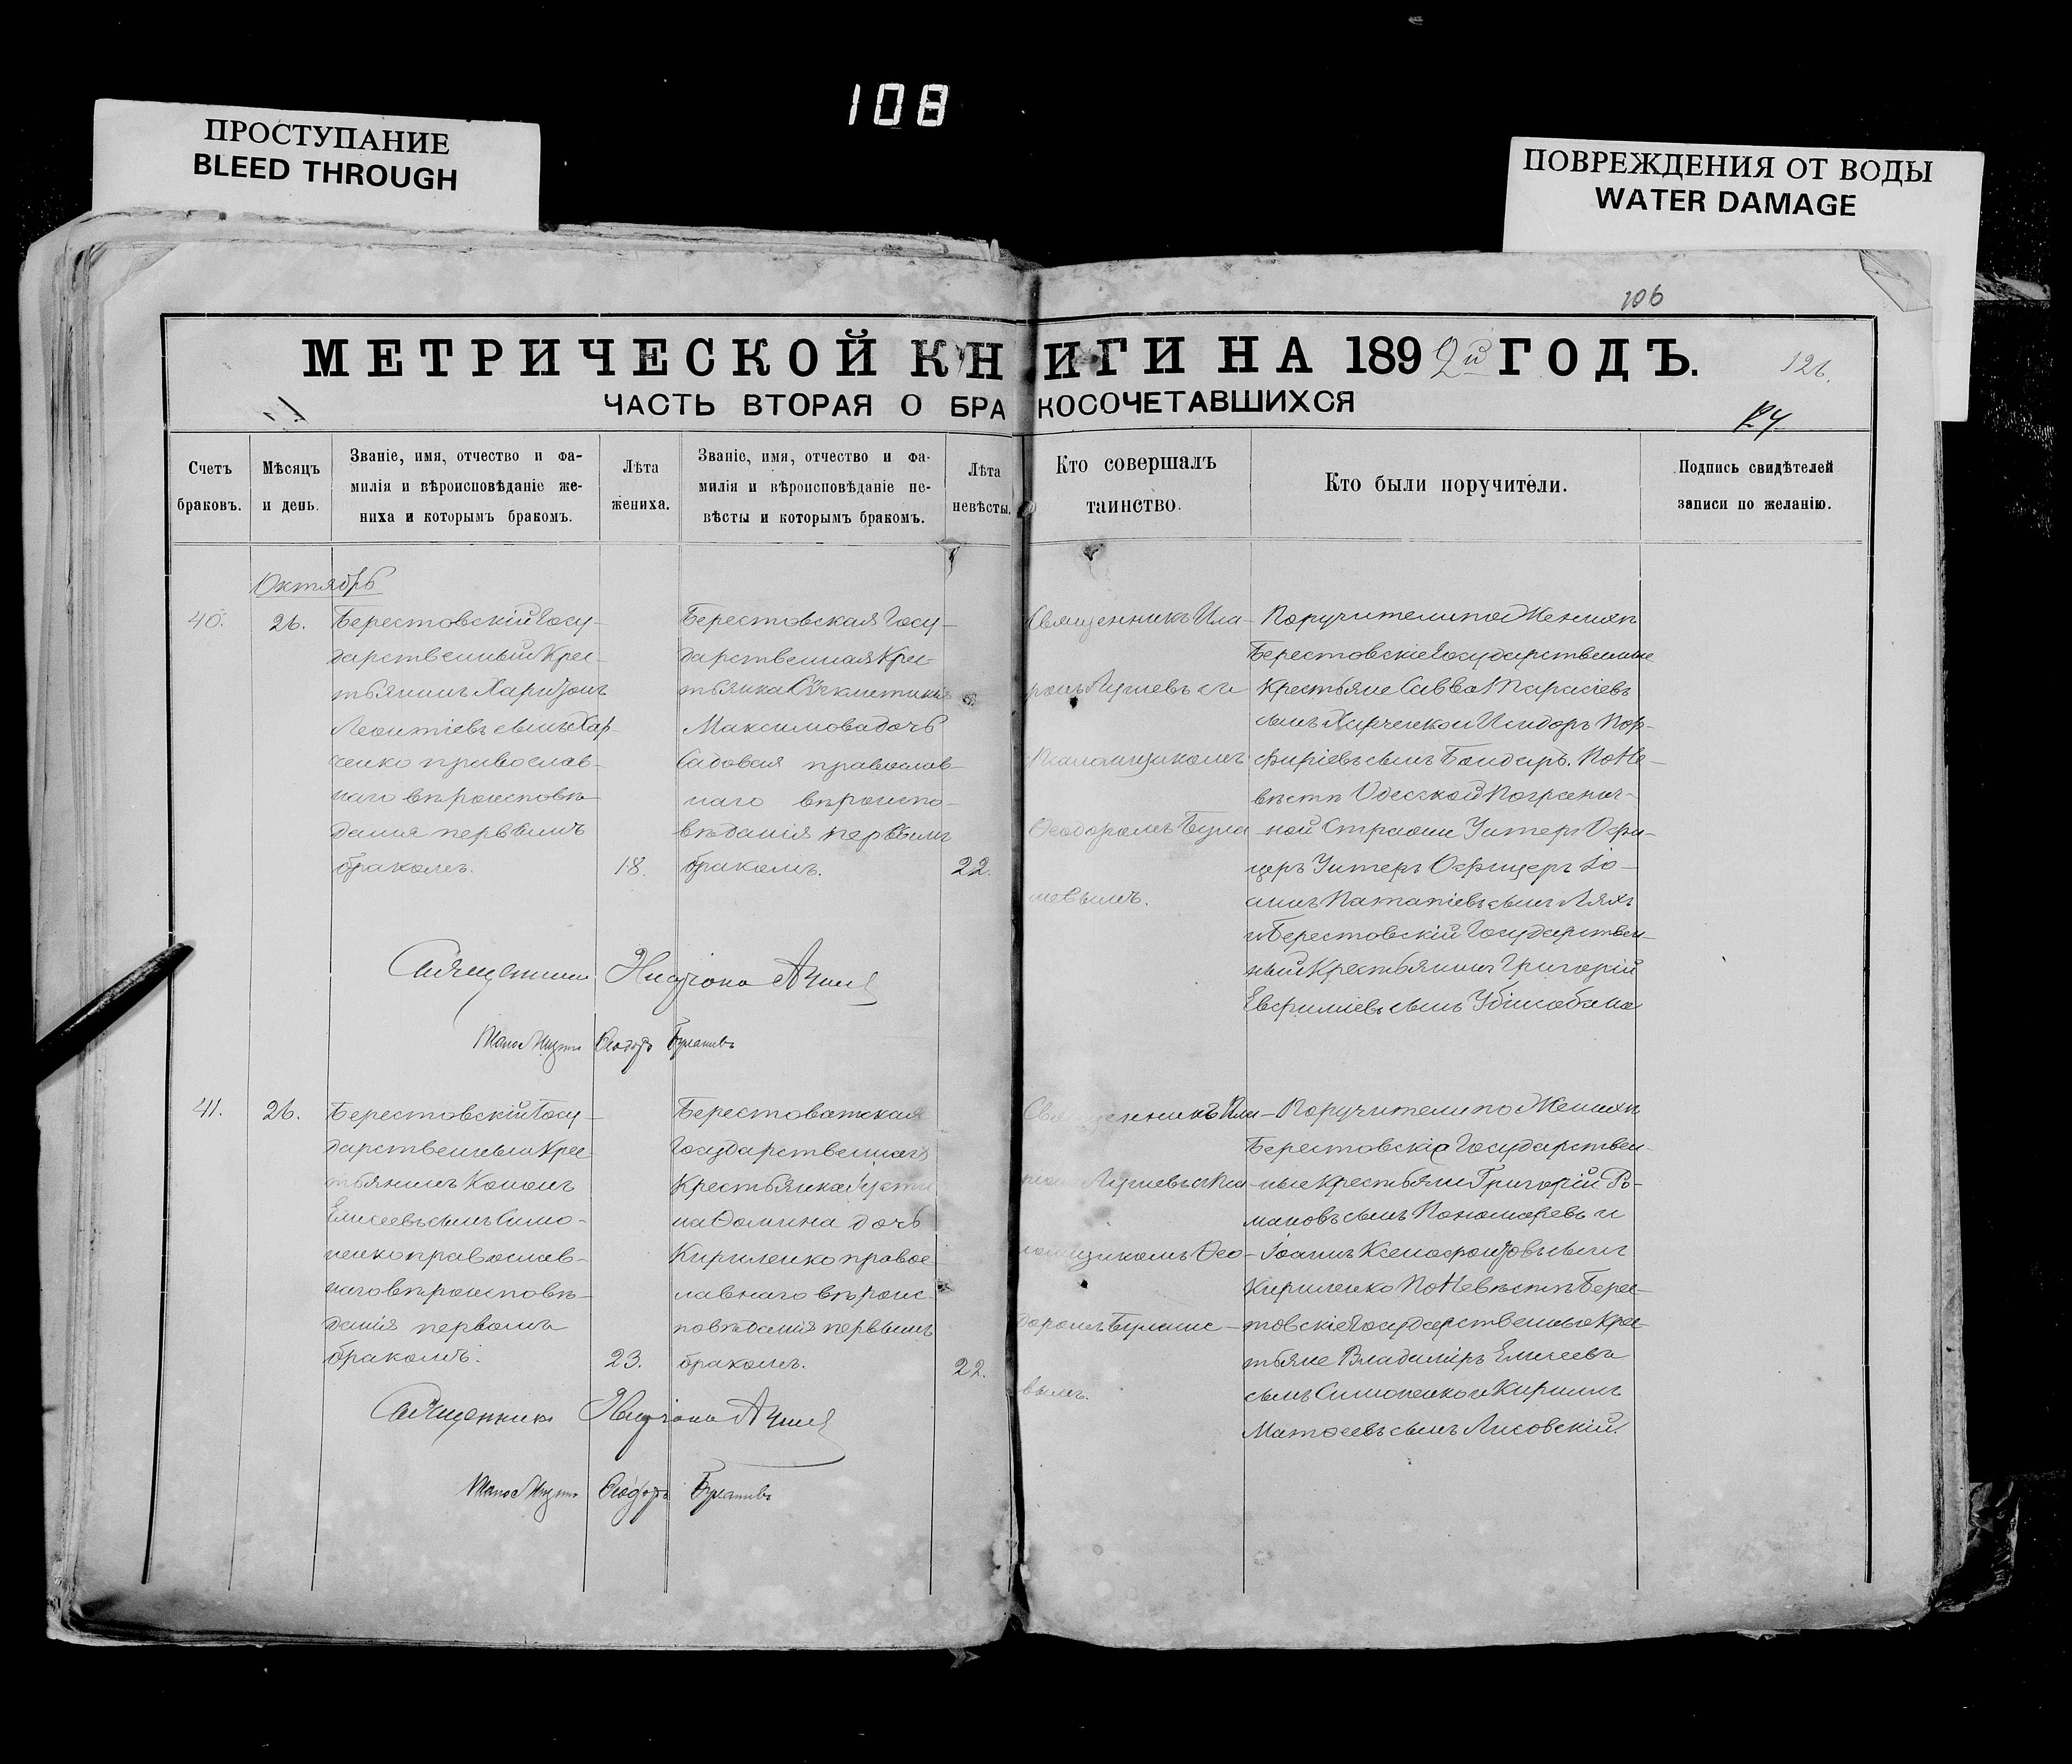 108
ПРОСТУПАНИЕ
BLEED THROUGH
ПОВРЕЖДЕНИЯ ОТ ВОДЫ
WATER DAMAGE
106
МЕТРИЧЕСКОЙ КНИГИ НА 1892й ГОДЪ.
126.
ЧАСТЬ ВТОРАЯ О БРАКОСОЧЕТАВШИХСЯ
Счетъ
браковъ.
Мѣсяцъ
и день.
Званіе, имя, отчество и фа-
милія и вѣроисповѣданіе же-
ниха и которымъ бракомъ.
Лѣта
жениха.
Званіе, имя, отчество и фа-
милія и вѣроисповѣданіе не-
вѣсты и которымъ бракомъ.
Лѣта
невѣсты.
Кто совершалъ
таинство.
Кто были поручители.
Подпись свидѣтелей
записи по желанію.
Октябрь
40.
26.
Берестовскій Госу-
дарственный Крес-
тьянинъ Харитонъ
Леонтіевъ сынъ Хар-
ченко православ-
наго вѣроисповѣ-
данія первымъ
бракомъ.
18.
Берестовская Госу-
дарственная Крес-
тьянка
Максимова дочь
Садовая православ-
наго вѣроиспо-
вѣданія первымъ
бракомъ.
22.
Священникъ Ила-
ріонъ
Псаломщикомъ
Ѳеодоромъ Була
новымъ.
Поручители по Женихѣ
Берестовскіе Государственные
Крестьяне Савва Тарасіевъ
сынъ Харченко и Исидоръ Пор-
фиріевъ сынъ Бондарь. По Не-
вѣстѣ Одесской Погранич-
ной Стражи Унтеръ Офи-
церъ Унтеръ Офицеръ Іо-
аннъ сынъ Ляхъ
и Берестовскій Государствен-
ный Крестьянинъ Григорій
Евфиміевъ сынъ
Священникъ
Псаломщикъ Ѳеодоръ Булановъ
41.
26.
Берестовскій Госу-
дарственный Крес-
тьянинъ Кононъ
Елисеевъ сынъ Симо-
ненко православ-
наго вѣроисповѣ-
данія первымъ
бракомъ.
23.
Берестоватская
Государственная
Крестьянка Іусти
на Ѳомина дочь
Кириленко право
славнаго вѣроис
повѣданія первымъ
бракомъ.
22.
Священникъ Ила-
ломщикомъ Ѳео-
доромъ Булано-
вымъ.
Поручители по Женихѣ
Берестовскіе Государствен-
ные Крестьяне Григорій Ро-
мановъ сынъ Пономаревъ и
Іоаннъ Ксенофонтовъ сынъ
Кириленко По Невѣстѣ Берес-
товскіе Государственные Крес-
тьяне Владиміръ Елисеевъ
сынъ Симоненко и Кириллъ
Матѳеевъ сынъ Лисовскій.
Священникъ
Псаломщикъ Ѳеодоръ Булановъ